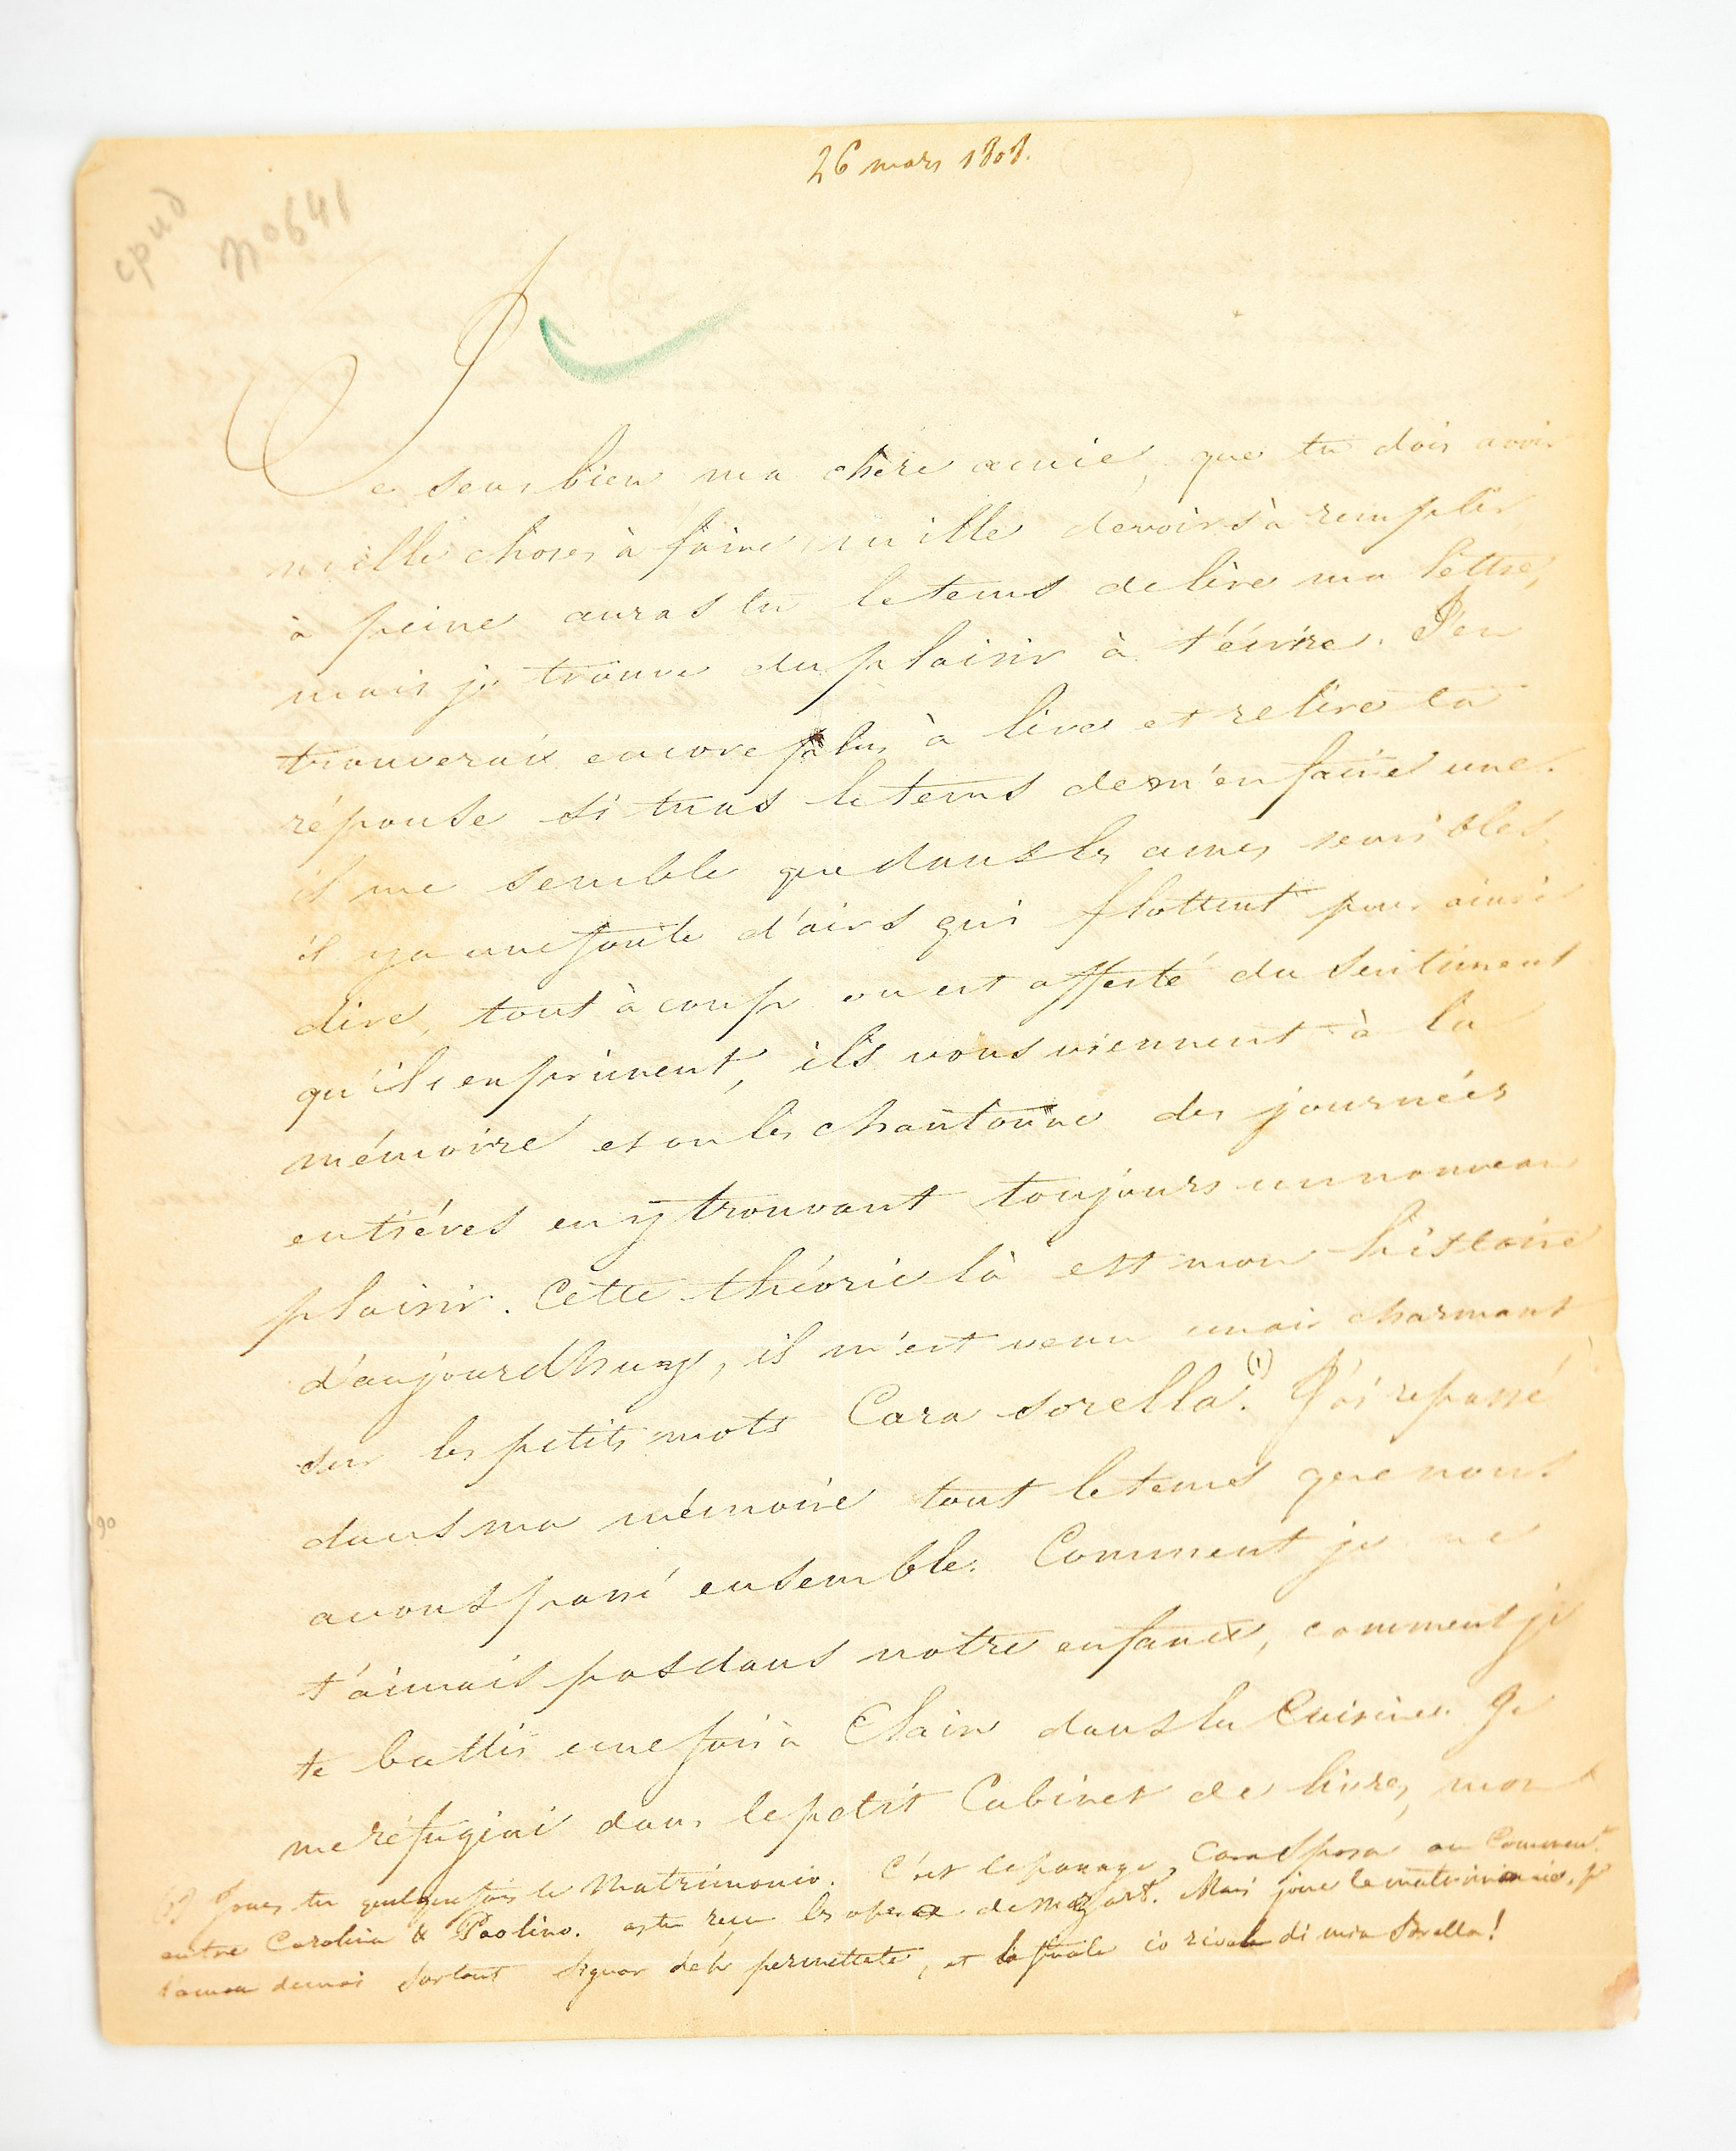 26 mars 1808.
n° 641
Je sens bien ma chère amie, que tu dois avoir
mille choses à faire, mille devoirs à remplir
à peine auras tu le tems de lire ma lettre,
mais je trouve du plaisir à t'écrire. J'en
trouverais encore plus à lire et relire ta
réponse si tu as le tems de m'en faire une.
il me semble que dans les ames sensibles
il y a une foule d'airs qui flottent pour ainsi
dire, tout à coup on est affecté du sentiment
qu'ils expriment, ils vous viennent à la
mémoire et on les chantonne des journées
entiéres en y trouvant toujours un nouveau
plaisir. Cette théorie là est mon histoire
d'aujourdhuy, il m'est venu un air charmant
sur les petits mots Cara sorella. (1) J'ai repassé
dans ma mémoire tout le tems que nous
avons passé ensemble. Comment je ne
t'aimais pas dans notre enfance, comment je
te battis une fois à Claix dans la Cuisine. Je
me réfugiai dans le petit Cabinet de livres, mon
(1) Joues tu quelquefois le Matrimonio. C'est le passage, Cara Sposa au Commen.t
entre Carolina & Paolino. as tu reçu les opera de Mozart. Mais joue le matrimonio, je
surtout Signor deh permettete, et la finale io rivale di mia Sorella!
90